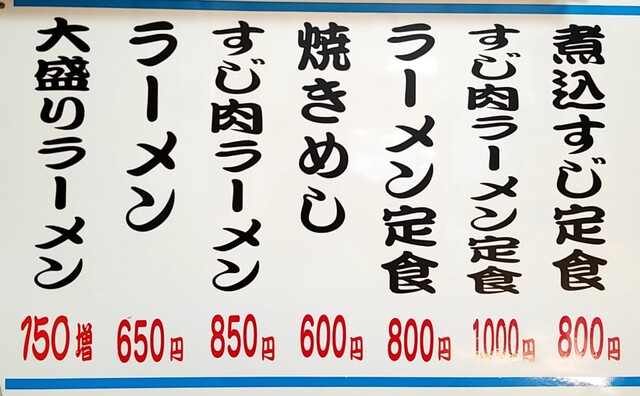 煮込すじ定食 800円
すじ肉ラーメン定食 1000円
ラーメン定食 800円
焼きめし 600円
すじ肉ラーメン 850円
ラーメン 650円
大盛りラーメン 150増